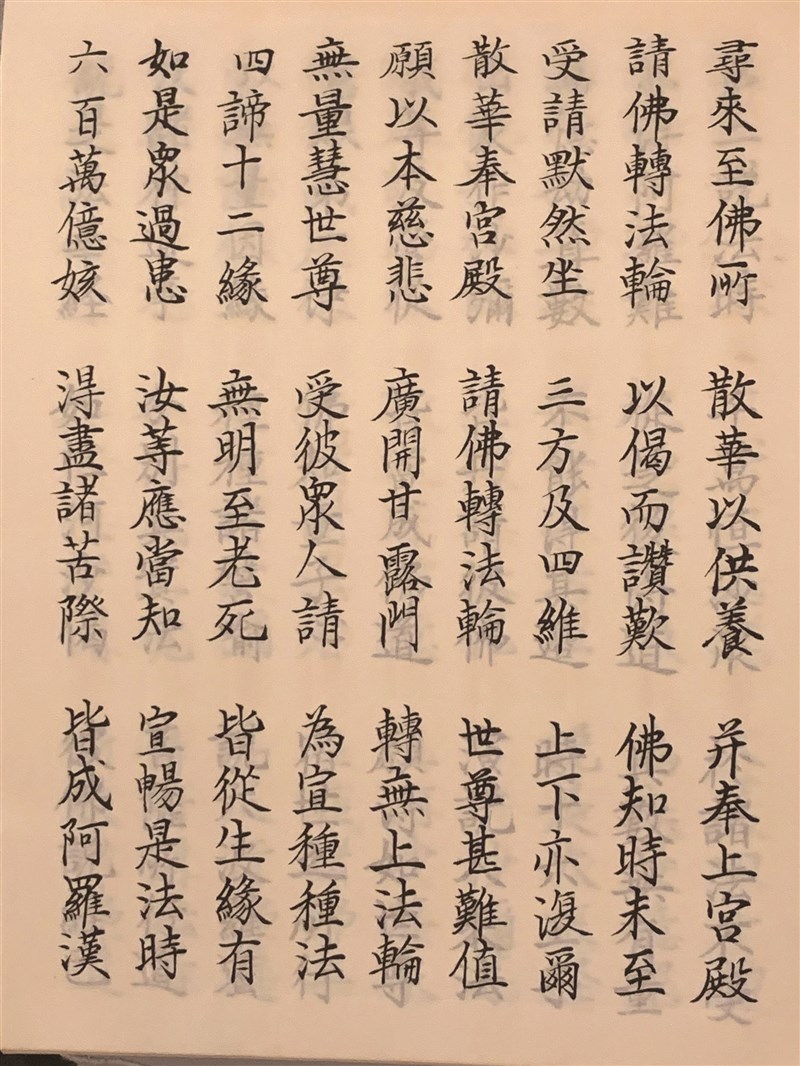 尋來至佛所 散華以供養 并奉上宮殿
請佛轉法輪 以偈而讚歎 佛知時未至
受請默然坐 三方及四維 上下亦復爾
散華奉宮殿 請佛轉法輪 世尊甚難值
願以本慈悲 廣開甘露門 轉無上法輪
無量慧世尊 受彼眾人請 為宣種種法
四諦十二緣 無明至老死 皆從生緣有
如是眾過患 汝等應當知 宣暢是法時
六百萬億姟 得盡諸苦際 皆成阿羅漢